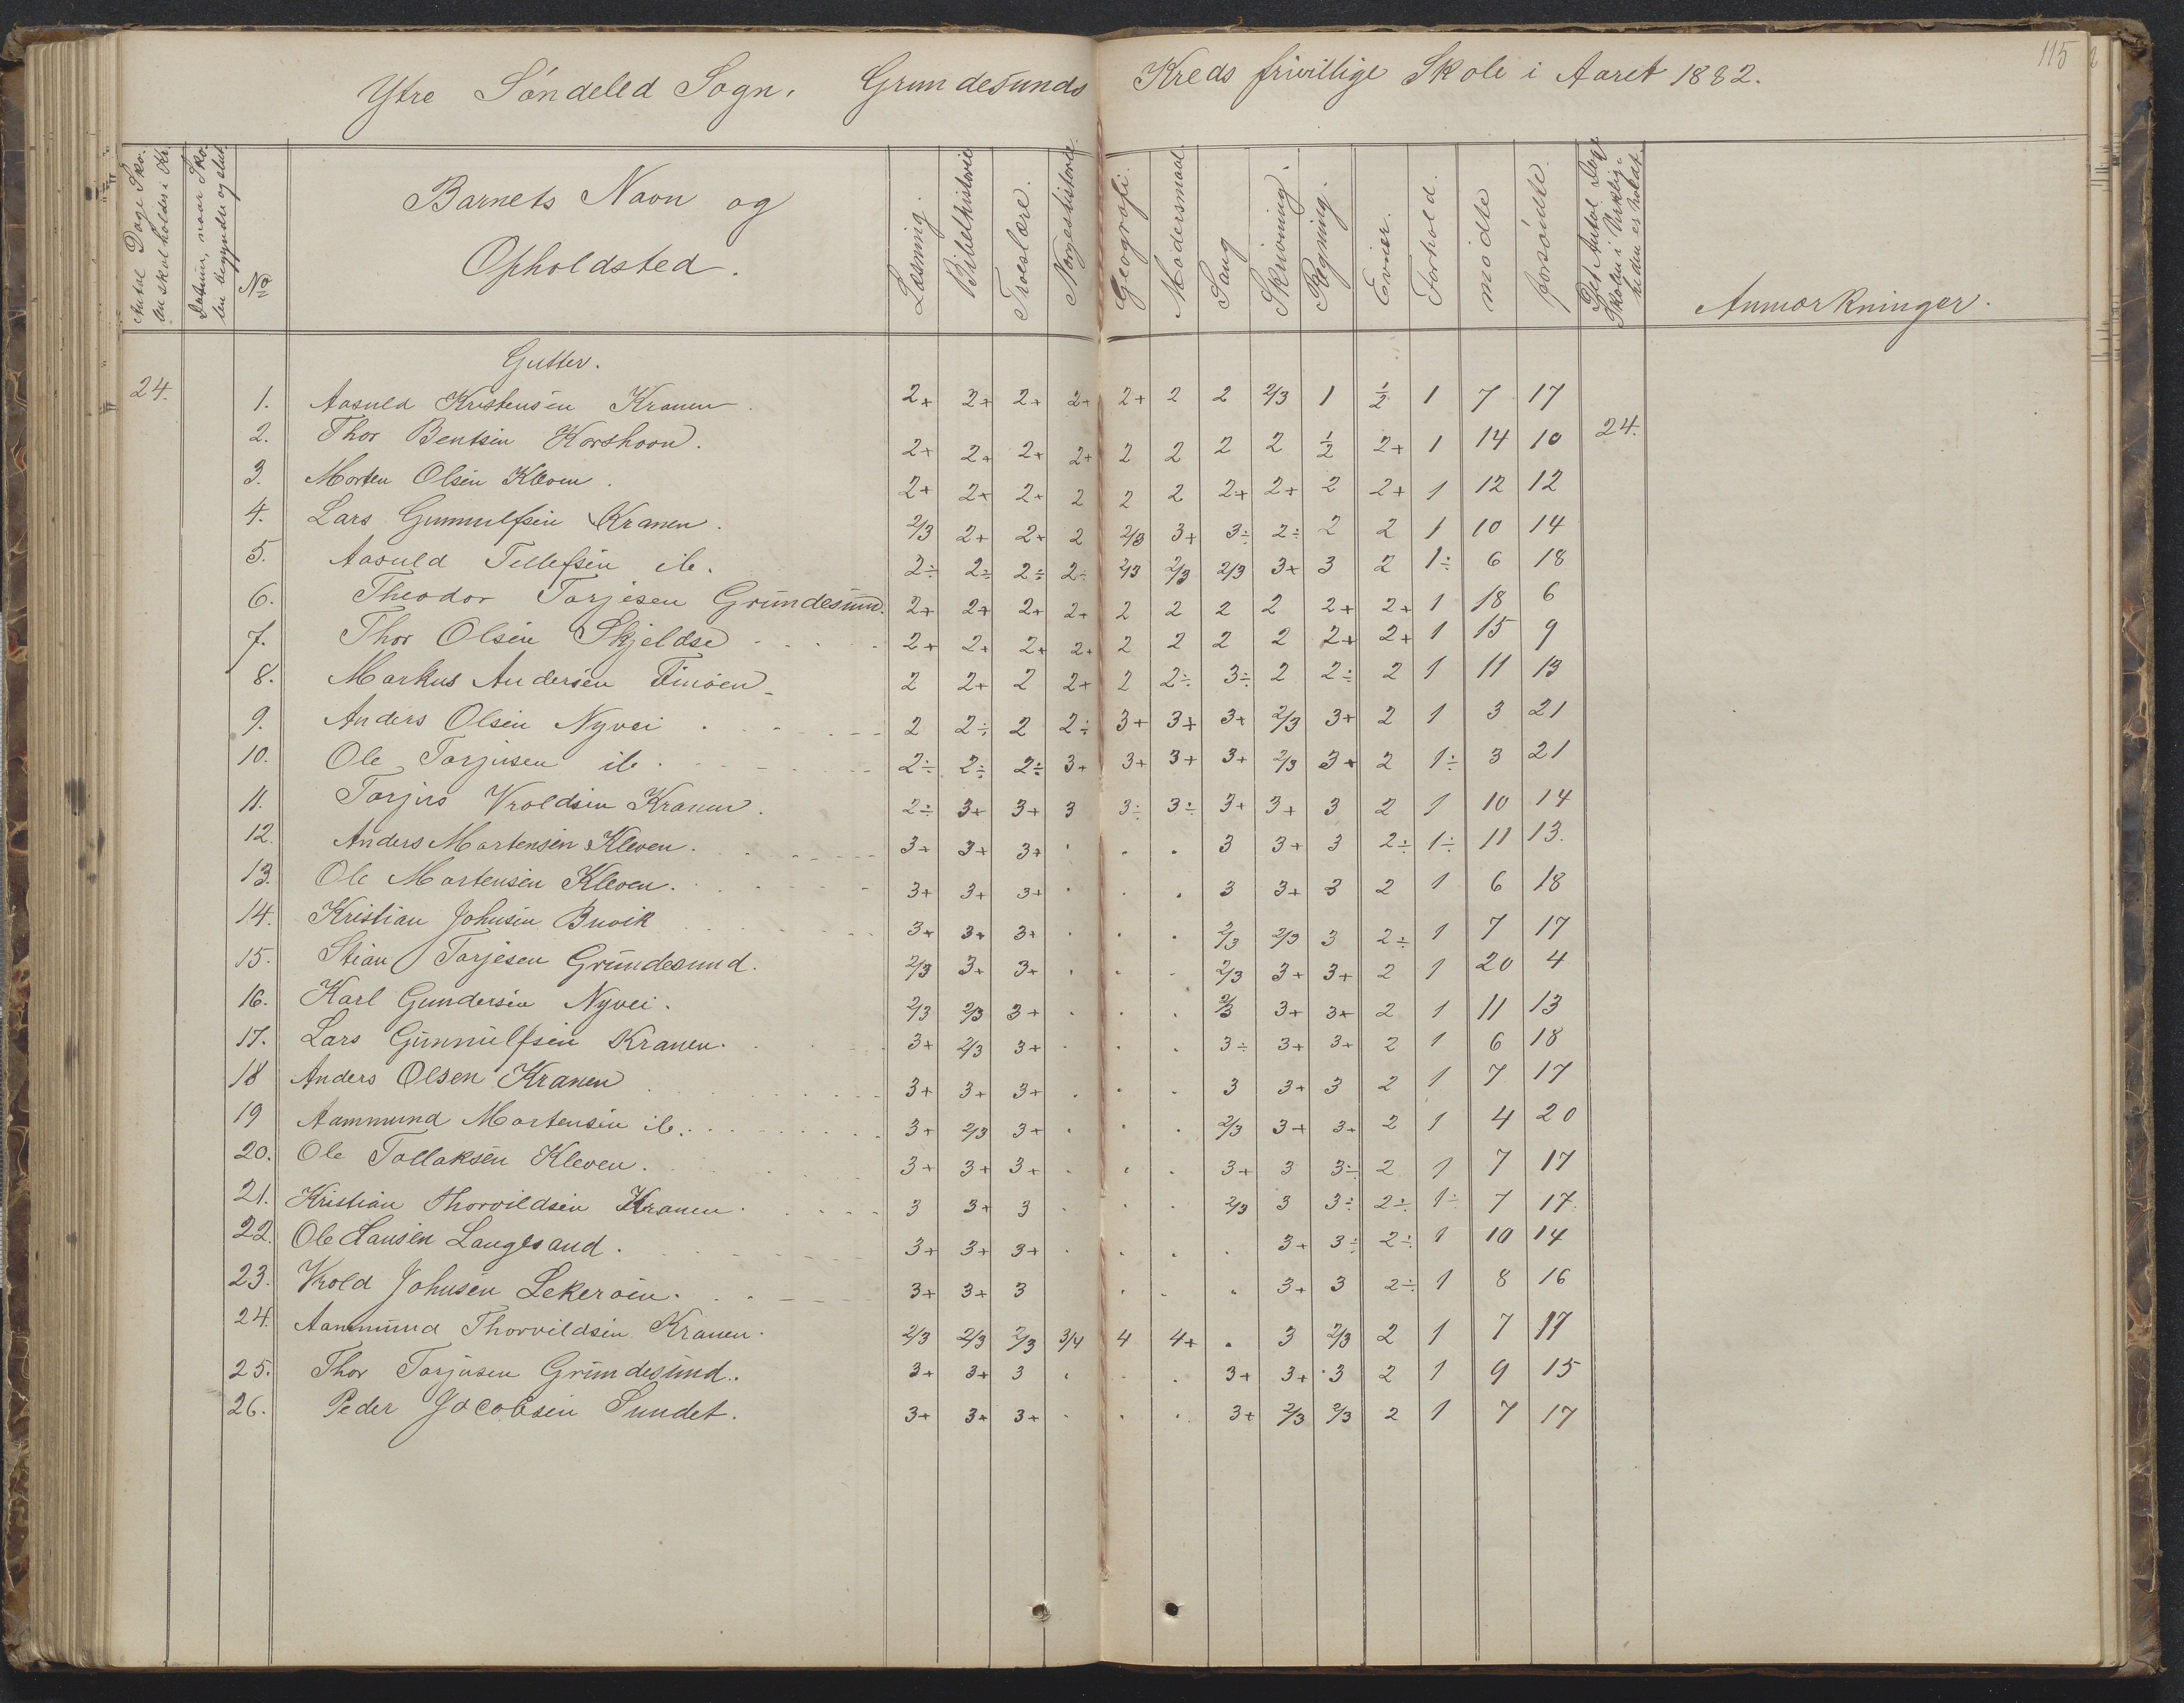 115
Ytre Söndeled Sogn. Grundesunds Kreds frivillige Skole i Aaret 1882.
Antal Dage Skolen skal holdes i Kr.
Datum, naar Skolen begynder og slut.
No
Barnets Navn og
Opholdsted.
Læsning.
Bibelhistorie
Troeslære.
Norgeshistorie
Geografi.
Modersmaal.
Sang
Skrivning.
Regning.
Evner.
Forhold.
mödte
forsömte.
Det Antal Dage Skolen i Virkeligheden er holdt.
Anmærkninger.
Gutter.
24. 1. Aasuld Kristensen Kranen 2+ 2+ 2+ 2+ 2+ 2 2 2/3 1 1/2 1 7 17
2. Thor Bentsen Korshavn. 2+ 2+ 2+ 2+ 2 2 2 2 1/2 2+ 1 14 10 24.
3. Morten Olsen Kleven. 2+ 2+ 2+ 2 2 2 2+ 2+ 2 2+ 1 12 12
4. Lars Gunnulfsen Kranen. 2/3 2+ 2+ 2 2/3 3+ 3÷ 2÷ 2 2 1 10 14
5. Aasuld Tellefsen ib. 2÷ 2÷ 2÷ 2÷ 2/3 2/3 2/3 3+ 3 2 1÷ 6 18
6. Theodor Torjesen Grundesund. 2+ 2+ 2+ 2+ 2 2 2 2 2+ 2+ 1 18 6
7. Thor Olsen Skjeldsø 2+ 2+ 2+ 2+ 2 2 2 2 2+ 2+ 1 15 9
8. Markus Andersen Finöen 2 2+ 2 2+ 2 2÷ 3÷ 2 2÷ 2 1 11 13
9. Anders Olsen Nyvei 2 2÷ 2 2÷ 3+ 3+ 3+ 2/3 3+ 2 1 3 21
10. Ole Torjusen ib. 2÷ 2÷ 2÷ 3+ 3+ 3+ 3+ 2/3 3+ 2 1÷ 3 21
11. Torjus Vroldsen Kranen. 2÷ 3+ 3+ 3 3÷ 3÷ 3+ 3+ 3 2 1 10 14
12. Anders Mortensen Kleven. 3+ 3+ 3+ . . . 3 3+ 3 2÷ 1÷ 11 13.
13. Ole Mortensen Kleven. 3+ 3+ 3+ . . . 3 3+ 3 2 1 6 18
14. Kristian Johnsen Buvik 3+ 3+ 3+ . . . 2/3 2/3 3 2÷ 1 7 17
15. Stian Torjesen Grundesund. 2/3 3+ 3+ . . . 2/3 3+ 3+ 2 1 20 4
16. Karl Gundersen Nyvei. 2/3 2/3 3+ . . . 2/3 3+ 3+ 2 1 11 13
17. Lars Gunnulfsen Kranen. 3+ 2/3 3+ . . . 3÷ 3+ 3+ 2 1 6 18
18 Anders Olsen Kranen 3+ 3+ 3+ . . . 3 3+ 3 2 1 7 17
19 Aammund Mortensen ib. 3+ 2/3 3+ . . . 2/3 3+ 3+ 2 1 4 20
20. Ole Tallaksen Kleven. 3+ 3+ 3+ . . . 3+ 3 3÷ 2 1 7 17
21. Kristian Thorvildsen Kranen. 3 3+ 3 . . . 2/3 3 3÷ 2÷ 1÷ 7 17.
22. Ole Hansen Langesand. 3+ 3+ 3+ . . . . 3+ 3÷ 2÷ 1 10 14
23. Vrold Johnsen Lekeröen. 3+ 3+ 3 . . . 3+ 3 2÷ 1 8 16
24. Aanmund Thorvildsen Kranen. 2/3 2/3 2/3 3/4 4 4+ . 3 2/3 2 1 7 17
25. Thor Torjusen Grundesund. 3+ 3+ 3 . . . 3+ 3+ 3 2 1 9 15
26. Peder Jacobsen Sundet. 3+ 3+ 3+ . . . 3+ 2/3 2/3 2 1 7 17